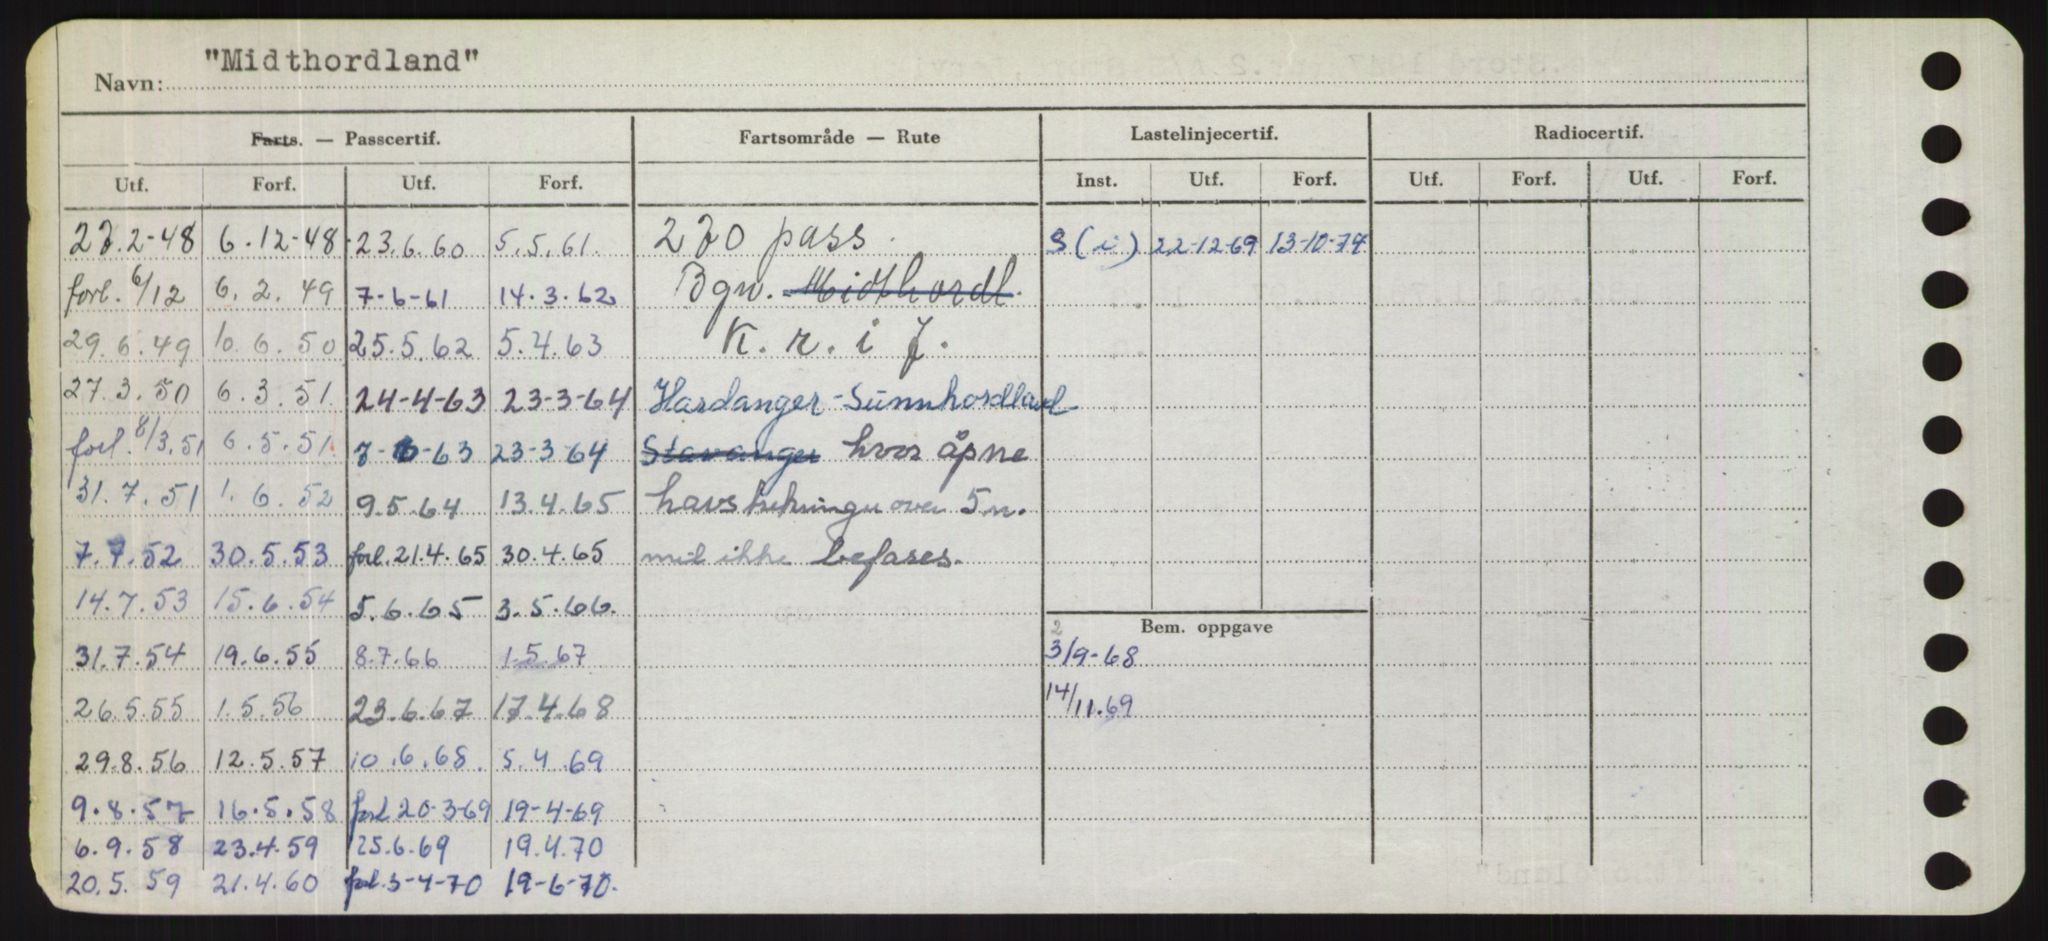 Navn: "Midthordland"
Farts. — Passcertif. Fartsområde — Rute Lastelinjecertif. Radiocertif.
Utf. Forf. Utf. Forf. Inst. Utf. Forf. Utf. Forf. Utf. Forf.
6.12-48 23.6.60 5.5.61. pass. S (i) 22-12-69 13-10-74
forl. 6/12 6.2.49 7-6-61 14.3.62 Bgn. Midthordl.
29.6.49 10.6.50 25.5.62 5.4.63 K. r. i J.
27.3.50 6.3.51 24-4-63 23-3-64 Hardanger-Sunnhordland
forl. 8/3.51 6.5.51. 7-6-63 23-3-64 Stavanger hvor åpne
31.7.51 1.6.52 9.5.64 13.4.65 over 5 n.
7.7.52 30.5.53 forl. 21.4.65 30.4.65 mil ikke befares.
14.7.53 15.6.54 5.6.65 3.5.66.
2 Bem. oppgave
31.7.54 19.6.55 8.7.66 1.5.67 3/9-68
26.5.55 1.5.56 23.6.67 17.4.68 14/11.69
29.8.56 12.5.57 10.6.68. 5.4.69
9.8.57 16.5.58 forl 20-3-69 19-4-69
6.9.58 23.4.59 25.6.69 19.4.70
20.5.59 21.4.60 forl. 3-4-70 19-6-70.